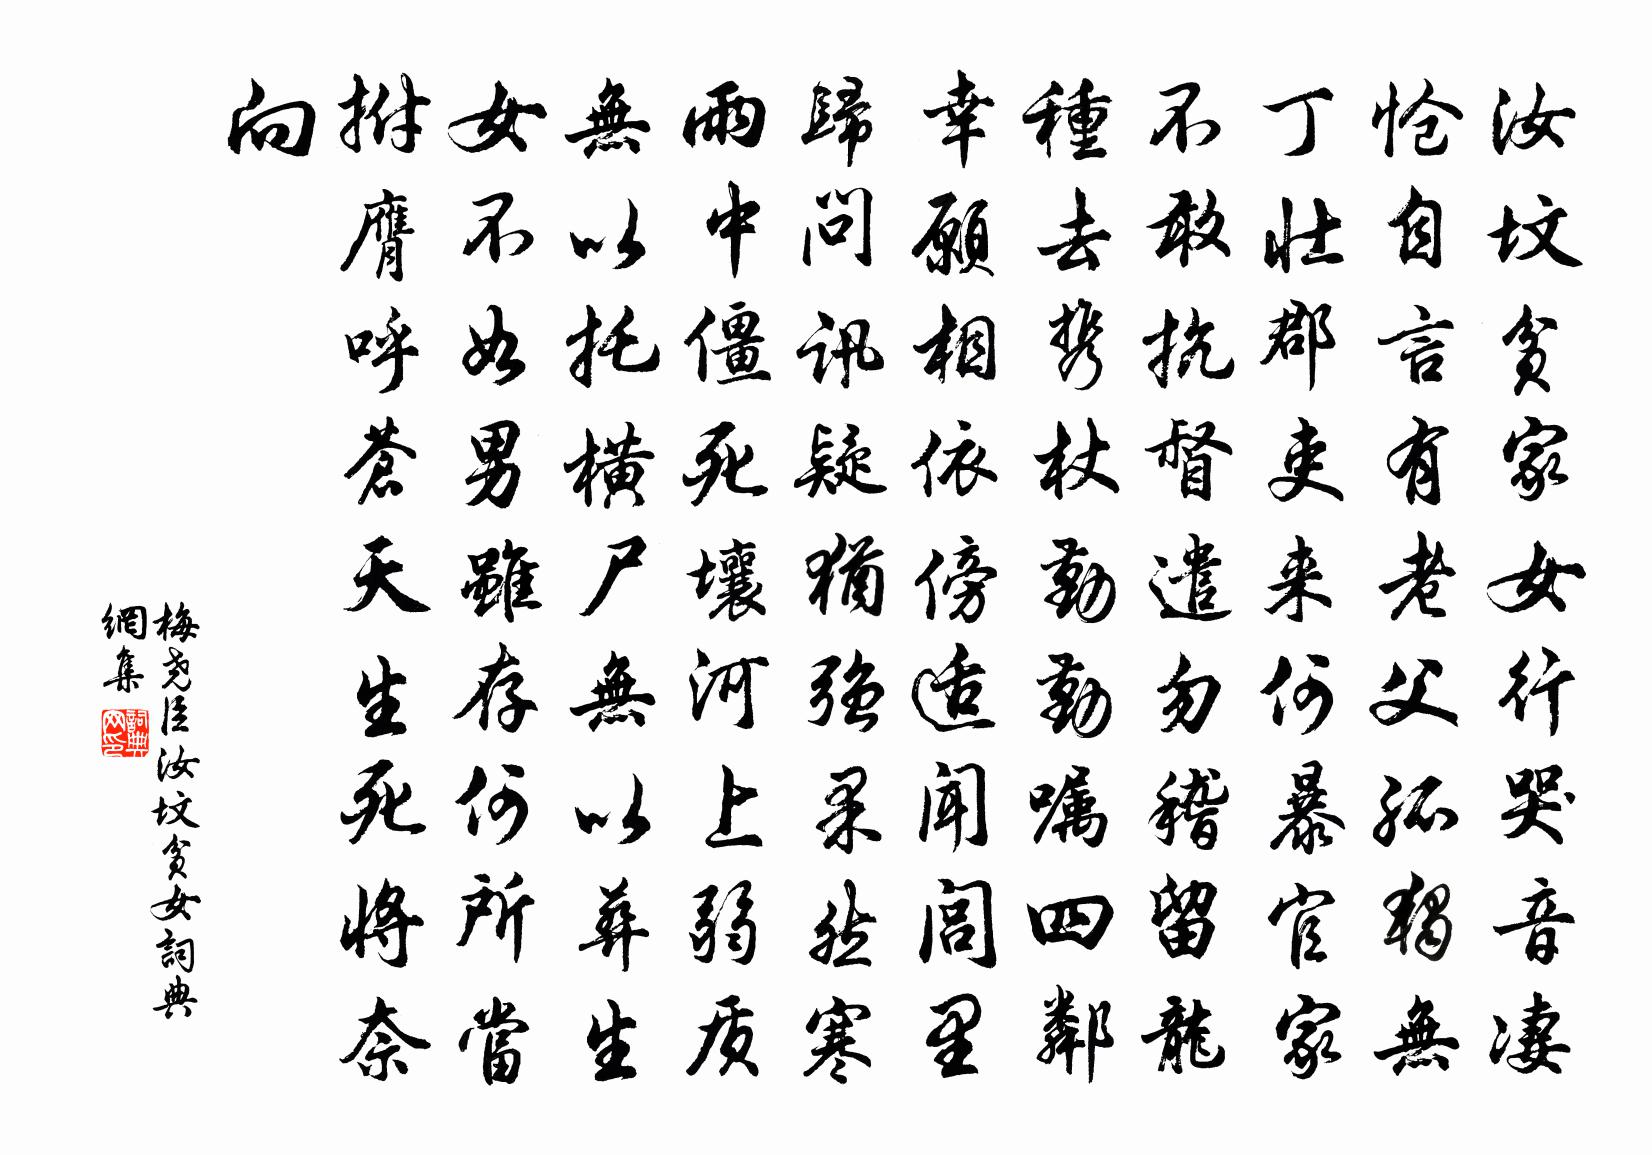 汝坟贫家女行哭音凄
怆自言有老父孤独無
丁壮郡吏来何暴官家
不敢抗督遣勿稽留龍
種去携杖勤勤嘱四鄰
幸願相依傍适闻閭里
歸问訊疑猶强果然寒
雨中僵死壤河上弱质
無以托橫尸無以葬生
女不如男雖存何所當
拊膺呼蒼天生死將奈
向
梅尧臣汝坟贫女詞典
網集
詞典网印